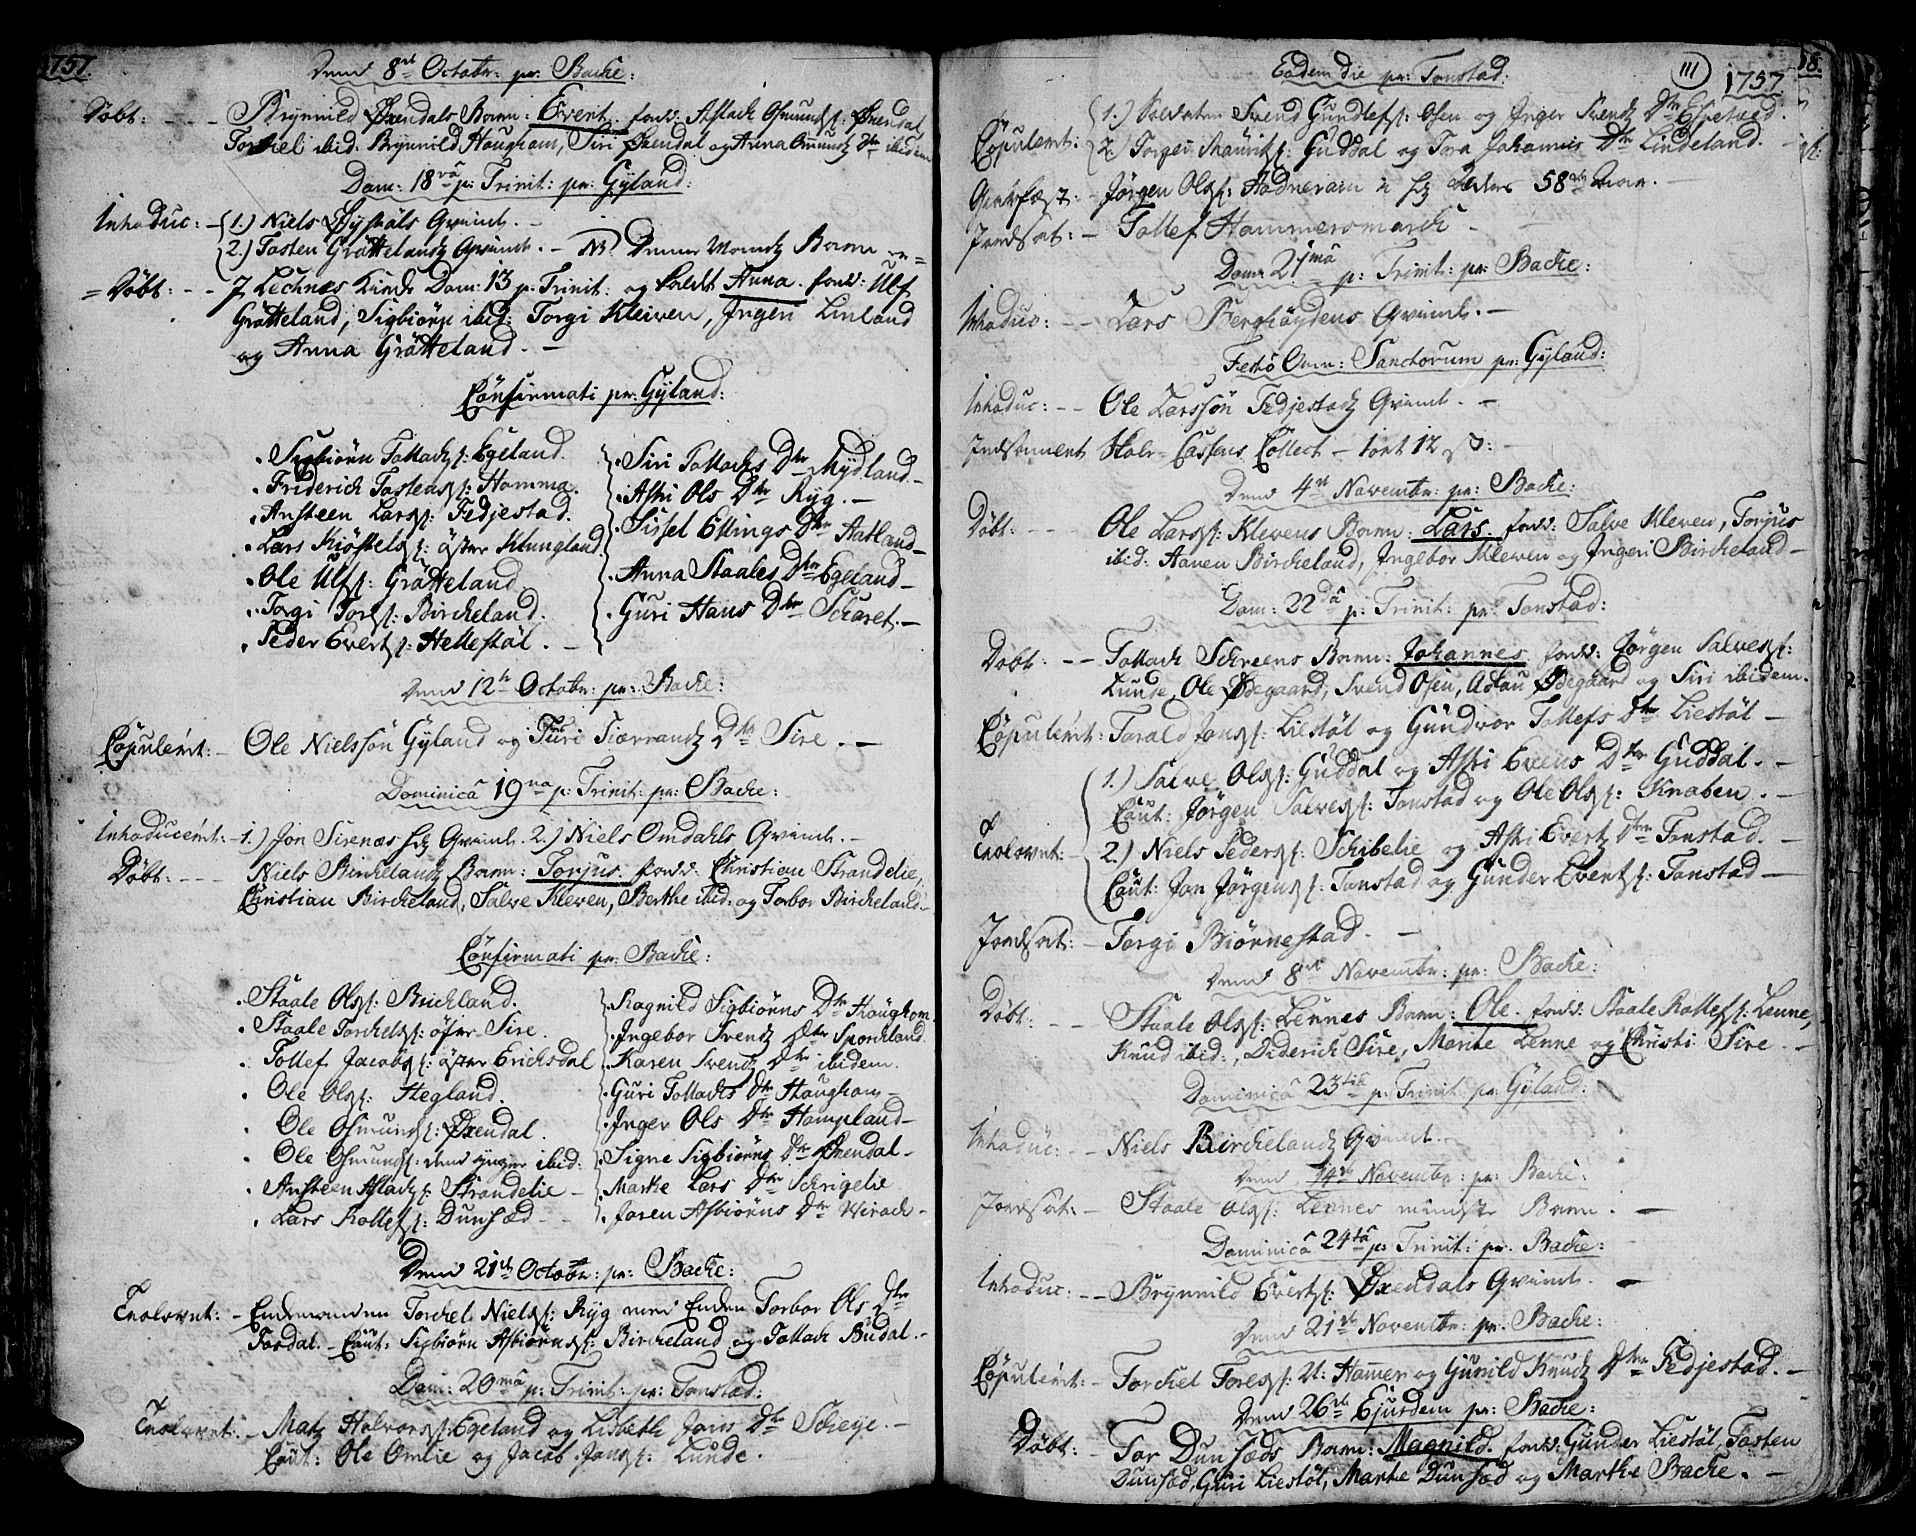 1757.
Dend 8de Octobr: pr: Backe:
Døbt: Brynnild Øxendals Barn: Evert. fadd: Aslack Osmunds: Øxendal
Torkiel ibid. Brynnild Haugham, Siri Øxendal og Anna Omunds Dtr ibidem
Dom: 18va p: Trinit: pr: Gyland:
Introduc: 1.) Niels Qvinde.
2.) Tosten Grøttelands Qvinde. - NB Denne Mands Barn er
= Døbt: Lechnes Kirche Dom: 13 p. Trinit: og kaldet Anna. fadd: Ulf
Grøtteland, Sigbiørn ibid: Torgi Kleiven, Ingeri Linland
og Anna Grøtteland.
Confirmati pr: Gyland:
Sigbiørn Tollacks: Egeland.
Friderich Tostens: Homma.
Ansteen Lars: Fedjestad.
Lars Kiøstels: øster Klungland.
Ole Ulfs: Grøtteland
Torgi Tores: Bircheland.
Peder Everts: Hellestøl.
Siri Tollachs Dtr Mydland.
Astri Ols Dtr Ryg.
Sissel Ellings Dtr Aatland
Anna Staales Dtr Egeland
Guri Hans Dtr Scharet.
Dend 12te Octobr: pr: Backe:
Copuleret: Ole Nielssøn Gyland og Turi Tiorrands Dtr Sire.
Dominicâ 19na p: Trinit: pr: Backe:
Introduceret: 1.) Jon Sirenæs Hs Qvinde. 2.) Niels Omdahls Qvinde.
Døbt: Niels Birchelands Barn: Torjus. fadd: Christian Strandelie,
Christian Bircheland, Salve Kleven, Berthe ibid. og Torbor Bircheland.
Confirmati pr: Backe:
Staale Ols: Birchland.
Staale Torchels: øfre Sire.
Tollef Jacobs: øster Erichsdal
Ole Ols: Hegland.
Ole Osmunds: Øxendal.
Ole Osmunds: dend yngre ibid:
Ansteen Aslachs: Strandelie
Lars Rollefs: Dunsæd
Ragnild Sigbiørns Dtr Haughom
Ingebor Svends Dtr Sporchland.
Karen Svends Dtr ibidem.
Guri Tollachs Dtr Haughom
Inger Ols Dtr Hompland
Signe Sigbiørns Dtr Øxendal
Marthe Lars Dtr Schrigelie
Joren Asbiørns Dtr Virach
Dend 21de Octobr: pr: Backe:
Trolovet: Enchemanden Torchel Niels: Ryg med Enchen Torbor Ols Dtr
Tordal. Caut: Sigbiørn Asbiørns: Bircheland og Tollach Budal.
Dom: 20mâ p: Trinit: pr: Tonstad:
Trolovet: Mats Halvors: Egeland og Lisbeth Jons Dtr Scheye.
Caut: Ole Omlie og Jacob Jons: Lunde.
111
1757
Eodem die pr: Tonstad:
Copuleret: 1.) Soldaten Svend Gundlefs: Osen og Inger Svends Dtr Espetved.
2.) Torgeri Mauritz: Guddal og Tora Johannis Dtr Lindeland.
Jørgen Ols: Aadneram 58 Aar.
Jordfæst: Tollef Hammersmarck
Dom: 21mâ p: Trinit: pr: Backe:
Introduc: Lars Berghøydens Qvinde.
Festo Omn: Sanctorum pr: Gyland:
Introduc: Ole Larssøn Fedjestads Qvinde.
Indsamlet Skole-Cassens Collect 12
Dend 4de Novembr: pr: Backe:
Døbt: Ole Lars: Klevens Barn: Lars. fadd: Salve Kleven, Torjus
ibid: Aanen Bircheland, Ingebor Kleven og Ingeri Bircheland
Dom: 22dâ p: Trinit: pr: Tonstad:
Døbt: Tollach Schreens Barn: Johannes. fadd: Jørgen Salves:
Lunde, Ole Ødegaard, Svend Osen, Adlau Ødegaard og Siri ibidem.
Copuleret: Torald Jons: Liestøl og Gundvor Tollefs Dtr Liestøl
1.) Salve Ols: Guddal og Astri Evens Dtr Guddal.
Caut: Jørgen Salves: Tonstad og Ole Ols: Knaben.
Trolovet: 2.) Niels Peders: Schibelie og Astri Everts Dtr Tonstad.
Caut: Jon Jørgens: Tonstad og Gunder Everts: Tonstad
Jordfæst: Torgi Biørnestad.
Dend 8de Novembr: pr: Backe:
Døbt: Staale Ols: Lennes Barn: Ole. fadd: Staale Rollefs: Lenne,
Knud ibid:, Diderich Sire, Marthe Lenne og Christi Sire.
Dominicâ 23tiâ p: Trinit: pr: Gyland:
Introduc: Niels Birchelands Qvinde.
Dend 14de Novembr: pr: Backe:
Jordfæst: Staale Ols: Lennes mindste Barn.
Dominicâ 24tâ p: Trinit: pr. Backe:
Introduc: Brynnild Everts: Øxendals Qvinde.
Dend 21de Novembr: pr: Backe:
Copuleret: Torchel Tores: Hamer og Gunild Knuds Dtr Fedjestad.
Dend 26de Ejusdem pr: Backe:
Døbt: Tor Dunsæds Barn: Magnild. fadd: Gunder Liestøl, Tosten
Dunsæd, Guri Liestøl, Marthe Dunsæd og Marthe Backe.